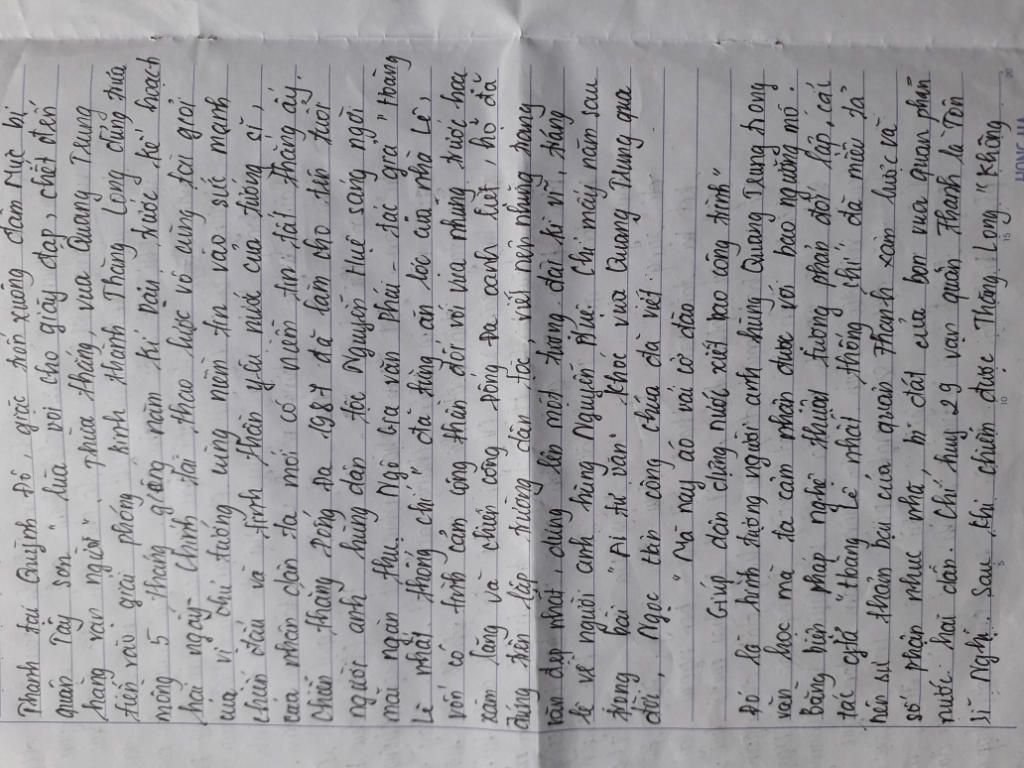 Thành tại Quỳnh Đô, giặc trốn xuống đầm Mực bị
quân Tây Sơn "lùa voi cho giày đạp, chết đến
hàng vạn người" Thừa thắng, vua Quang Trung
tiến vào giải phóng kinh thành Thăng Long đúng trưa
mồng 5 tháng giêng năm kỉ Dậu, trước kế hoạch
hai ngày. Chính tài thao lược vô cùng tài giỏi
của vị chủ tướng cùng niềm tin vào sức mạnh
chiến đấu và tinh thần yêu nước của tướng sĩ,
của nhân dân ta mới có niềm tin tất thắng ấy.
Chiến thắng Đống Đa 1987 đã làm cho tên tuổi
người anh hùng dân tộc Nguyễn Huệ sáng ngời
mãi ngàn thu. Ngô gia văn phái - tác giả "Hoàng
Lê nhất thống chí" đã từng ăn lộc của nhà Lê,
vốn có tình cảm công thần đối với vua nhưng trước họa
xâm lăng và chiến công Đống Đa oanh liệt, họ đã
đứng trên lập trường dân tộc viết nên những trang
văn đẹp nhất, dựng lên một tháng đài kì vĩ, tráng
lệ về người anh hùng Nguyễn Huệ. Chỉ mấy năm sau
trong bài "Ai tư vãn" khóc vua Quang Trung qua
đời, Ngọc Hân công chúa đã viết:
"Mà nay áo vải cờ đào
Giúp dân dựng nước xiết bao công trình"
Đó là hình tượng người anh hùng Quang Trung trong
văn học mà ta cảm nhận được với bao ngưỡng mộ.
Bằng biện pháp nghệ thuật tương phản đối lập, các
tác giả "Hoàng Lê nhất thống chí" đã miêu tả
nên sự thảm bại của quân Thanh xâm lược và
số phận nhục nhã, bi đát của bọn vua quan phản
nước hại dân. Chỉ huy 29 vạn quân Thanh là Tôn
Sĩ Nghị. Sau khi chiếm được Thăng Long "không
5
10
15
20
HONG HA